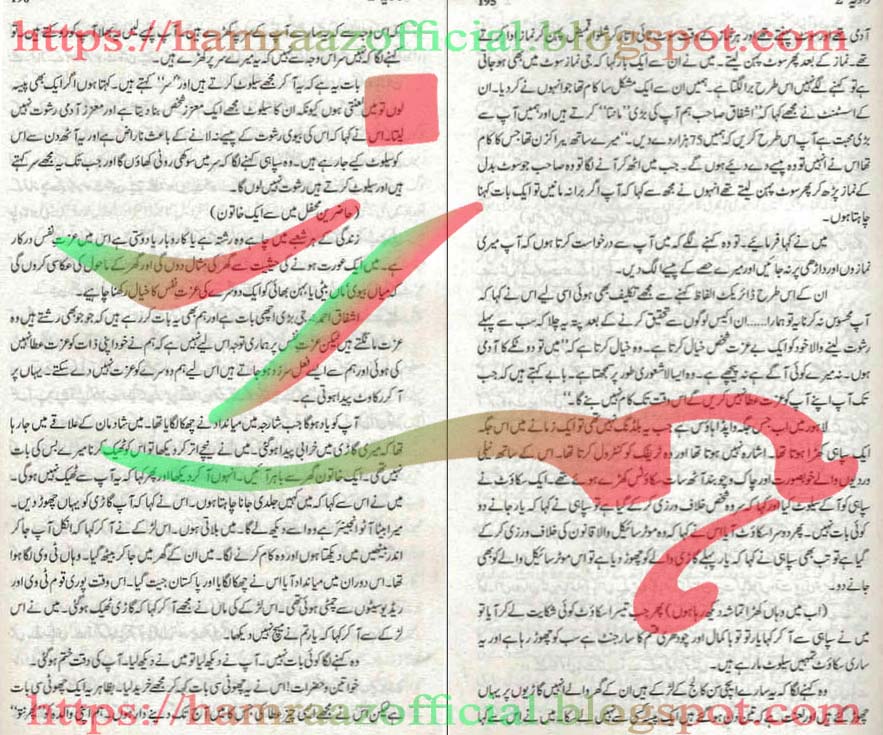 195
آدمی تھے اور سوٹ پہنتے تھے اور ہر نماز کے وقت سوٹ ٹائی اتار کر شلوار قمیض پہن کر نماز ادا کرتے
https://hamraazofficial.blogspot.com
تھے۔ نماز کے بعد پھر سوٹ پہن لیتے۔ میں نے ان سے ایک بار کہا کہ جی نماز سوٹ میں بھی ہو جاتی
ہے تو کہنے لگے نہیں اس طرح برا لگتا ہے۔ ہمیں ان سے ایک مشکل سا کام تھا جو انہوں نے کر دیا۔ ان
کے اسسٹنٹ نے مجھے کہا کہ "اشفاق صاحب ہم آپ کی بڑی "مانتا" کرتے ہیں اور ہمیں آپ سے
بڑی محبت ہے آپ اس طرح کریں کہ ہمیں 75 ہزار دے دیں۔" میرے ساتھ میرا کزن تھا جس کا کام
تھا اس نے انہیں تو وہ پیسے دے دیئے ہوں گے۔ جب میں اٹھ کر آنے لگا تو وہ صاحب جو سوٹ بدل
کے نماز پڑھ کر پھر سوٹ پہن لیتے تھے انہوں نے مجھ سے کہا کہ آپ اگر برا نہ مانیں تو ایک بات کہنا
چاہتا ہوں۔
میں نے کہا فرمائیے۔ تو وہ کہنے لگے کہ میں آپ سے درخواست کرتا ہوں کہ آپ میری
نمازوں اور داڑھی پر نہ جائیں اور میرے حصے کے پیسے الگ دیں۔
ان کے اس طرح ڈائریکٹ الفاظ کہنے سے مجھے تکلیف بھی ہوئی اسی لیے اس نے کہا کہ
آپ محسوس نہ کرنا یہ تو ہمارا......ان اکیس لوگوں سے تحقیق کرنے کے بعد پتہ یہ چلا کہ سب سے پہلے
رشوت لینے والا خود کو ایک بے عزت شخص خیال کرتا ہے۔ وہ خیال کرتا ہے کہ "میں تو دو ٹکے کا آدمی
ہوں۔ نہ میرے کوئی آگے ہے نہ پیچھے ہے۔ وہ ایسا لاشعوری طور پر سمجھتا ہے۔ بابے کہتے ہیں کہ جب
تک آپ اپنے آپ کو عزت عطا نہیں کریں گے اس وقت تک کام نہیں بنے گا۔"
لاہور میں اب جس جگہ واپڈا ہاؤس ہے جب یہ بلڈنگ نہیں تھی تو ایک زمانے میں اس جگہ
ایک سپاہی کھڑا ہوتا تھا۔ اشارہ نہیں ہوتا تھا اور وہ ٹریفک کو کنٹرول کرتا تھا۔ اس کے ساتھ نیلی
وردیوں والے خوبصورت اور چاک و چوبند آٹھ سات سکاؤٹس کھڑے ہوئے تھے۔ ایک سکاؤٹ نے
سپاہی کو آ کے سیلوٹ کیا اور کہا کہ سر وہ شخص خلاف ورزی کر کے گیا ہے تو سپاہی نے کہا کہ یار جانے دو
کوئی بات نہیں۔ پھر دوسرا سکاؤٹ آیا اس نے کہا کہ وہ موٹر سائیکل والا قانون کی خلاف ورزی کر کے
گیا ہے تو تب بھی سپاہی نے کہا کہ یار پہلے گاڑی والے کو چھوڑ دیا ہے تو اس موٹر سائیکل والے کو بھی
جانے دو۔
(اب میں وہاں کھڑا تماشہ دیکھ رہا ہوں) پھر جب تیسرا سکاؤٹ کوئی شکایت لے کر آیا تو
میں نے سپاہی سے آ کر کہا یار تو تو با کمال اور چودھری قسم کا سارجنٹ ہے سب کو چھوڑ رہا ہے اور یہ
ساری سکاؤٹ تمہیں سیلوٹ مار رہے ہیں۔
وہ کہنے لگا کہ یہ سارے ایچی سن کالج کے لڑکے ہیں ان کے گھر والے انہیں گاڑیوں پر یہاں
https://hamraazofficial.blogspot.com
کہنے لگا کہ نہیں سر اس وجہ سے نہیں کہ یہ میرے سر پر کھڑے ہیں۔
بات یہ ہے کہ یہ آ کر مجھے سیلوٹ کرتے ہیں اور "سر" کہتے ہیں۔ کہتا ہوں اگر ایک بھی پیسہ
لوں تو میں لعنتی ہوں کیونکہ ان کا سیلوٹ مجھے ایک معزز شخص بنا دیتا ہے اور معزز آدمی رشوت نہیں
لیتا۔ اس نے کہا کہ اس کی بیوی رشوت کے پیسے نہ لانے کے باعث ناراض ہے اور یہ آٹھ دن سے اس
کو سیلوٹ کیے جا رہے ہیں۔ وہ سپاہی کہنے لگا کہ سر میں سوکھی روٹی کھاؤں گا اور جب تک یہ مجھے سر کہتے
ہیں اور سیلوٹ کرتے ہیں رشوت نہیں لوں گا۔
(حاضرین محفل میں سے ایک خاتون)
زندگی کے ہر شعبے میں چاہے وہ رشتہ ہے یا کاروبار یا دوستی ہے اس میں عزت نفس درکار
ہے۔ میں ایک عورت ہونے کی حیثیت سے گھر کی مثال دوں گی اور گھر کے ماحول کی عکاسی کروں گی
کہ میاں بیوی ماں بیٹی یا بہن بھائی کو ایک دوسرے کی عزت نفس کا خیال رکھنا چاہیے۔
اشفاق احمد: جی بڑی اچھی بات ہے اور ہم بھی یہ بات کر رہے ہیں کہ جو جو بھی رشتے ہیں وہ
عزت مانگتے ہیں لیکن عزت نفس پر ہماری توجہ اس لیے نہیں ہے کہ ہم نے خود اپنی ذات کو عزت عطا نہیں
کی ہوئی اور ہم سے ایسے فعل سرزد ہو جاتے ہیں اس لیے ہم دوسرے کو عزت نہیں دے سکتے۔ یہاں پر
آ کر رکاوٹ پیدا ہوتی ہے۔
آپ کو یاد ہوگا جب شارجہ میں میانداد نے چھکا لگایا تھا۔ میں شادمان کے علاقے میں جا رہا
تھا کہ میری گاڑی میں خرابی پیدا ہو گئی۔ میں نے نیچے اتر کر دیکھا تو اس کو ٹھیک کرنا میرے بس کی بات
نہیں تھی۔ ایک خاتون گھر سے باہر آئیں۔ انہوں آ کر دیکھا اور پھر کہا کہ یہ آپ سے ٹھیک نہیں ہوگی۔
میں نے اس سے کہا کہ میں کہیں جلدی جانا چاہتا ہوں۔ اس نے کہا کہ آپ گاڑی کو یہاں چھوڑ دیں۔
میرا بیٹا آٹو انجینئر ہے وہ اسے دیکھ لے گا۔ میں بلاتی ہوں۔ اس لڑکے نے آ کر کہا کہ انکل آپ جا کر
اندر بیٹھیں میں دیکھتا ہوں اور وہ کام کرنے لگا۔ میں ان کے گھر میں جا کر بیٹھ گیا۔ وہاں ٹی وی لگا ہوا
تھا۔ اس دوران میں میانداد آیا اس نے چھکا لگایا اور پاکستان جیت گیا۔ اس وقت پوری قوم ٹی وی اور
ریڈیو سیٹوں سے چمٹی ہوئی تھی۔ اس لڑکے کی ماں نے مجھے آ کر کہا کہ گاڑی ٹھیک ہو گی۔ میں نے اس
لڑکے سے آ کر کہا کہ یار تم نے میچ نہیں دیکھا۔
وہ کہنے لگا کوئی بات نہیں۔ آپ نے دیکھ لیا تو میں نے دیکھ لیا۔ آپ کی وقت ختم ہو گئی۔
خواتین و حضرات! اس نے یہ چھوٹی سی بات کہہ کر مجھے خرید لیا۔ بظاہر یہ ایک چھوٹی سی بات